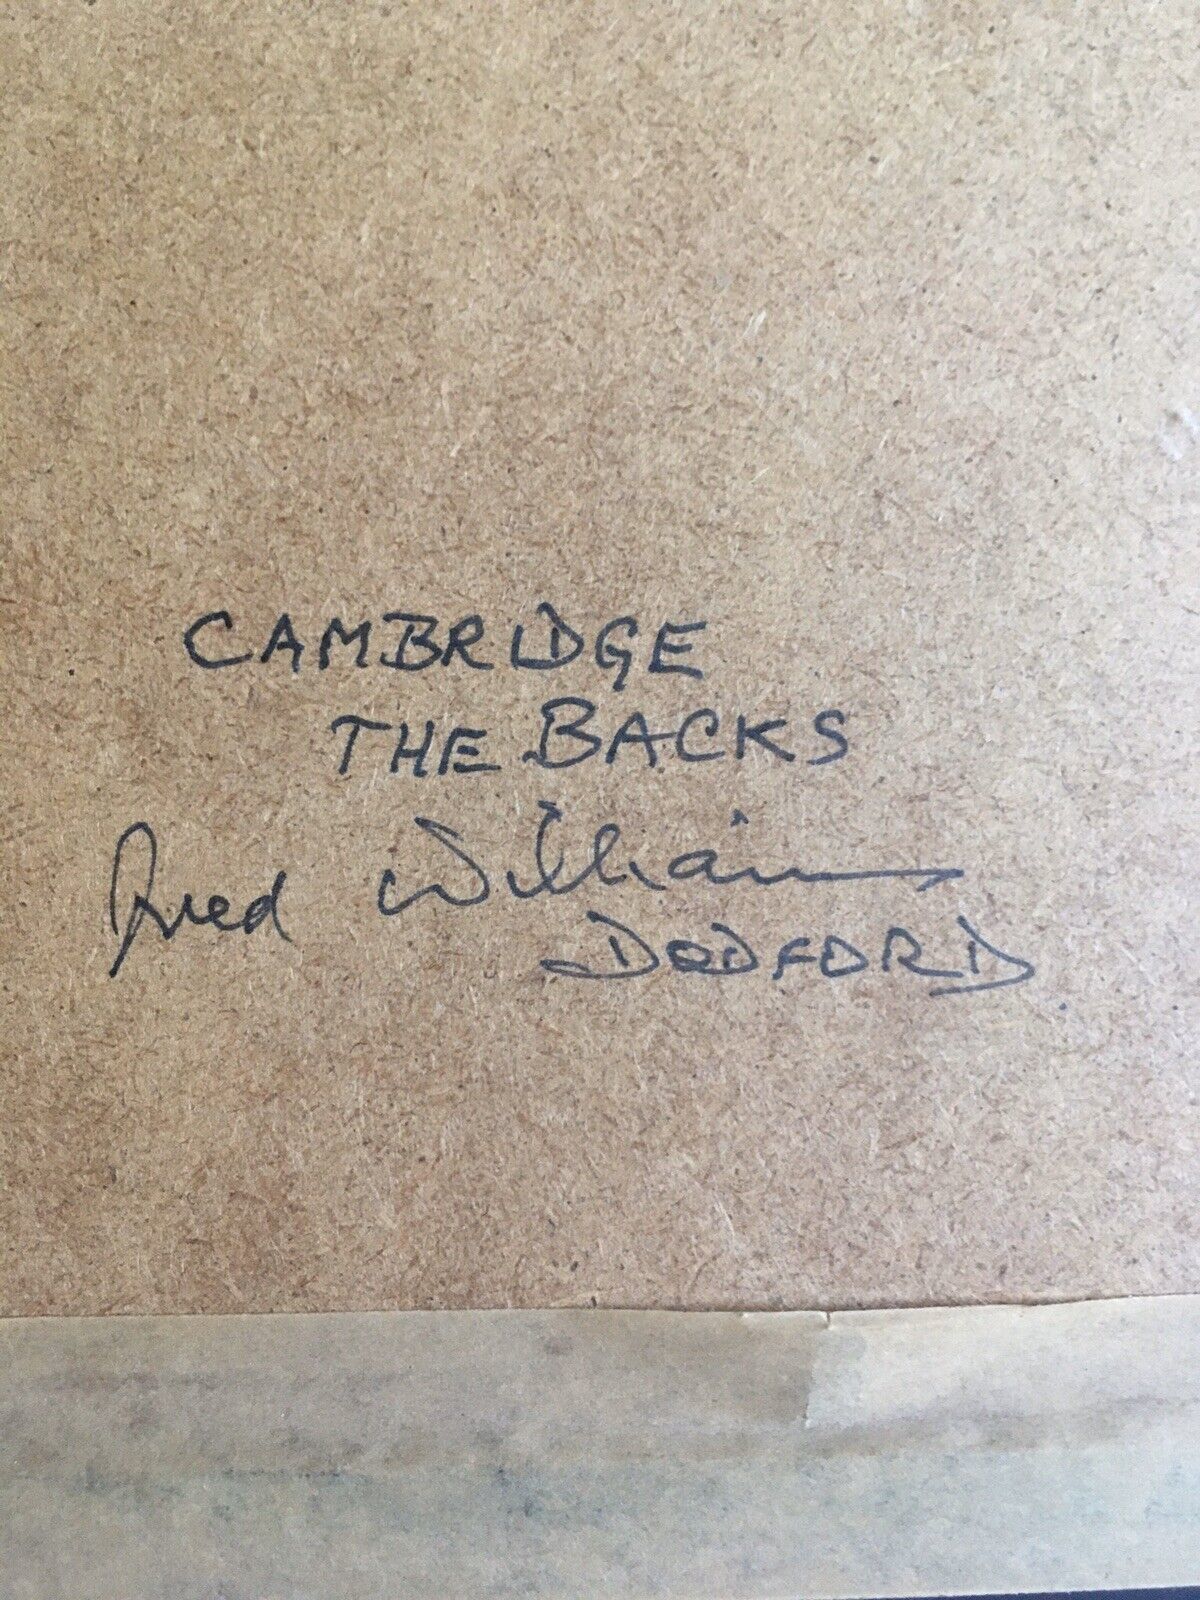 CAMBRIDGE
THE BACKS
Fred Williams
DODFORD